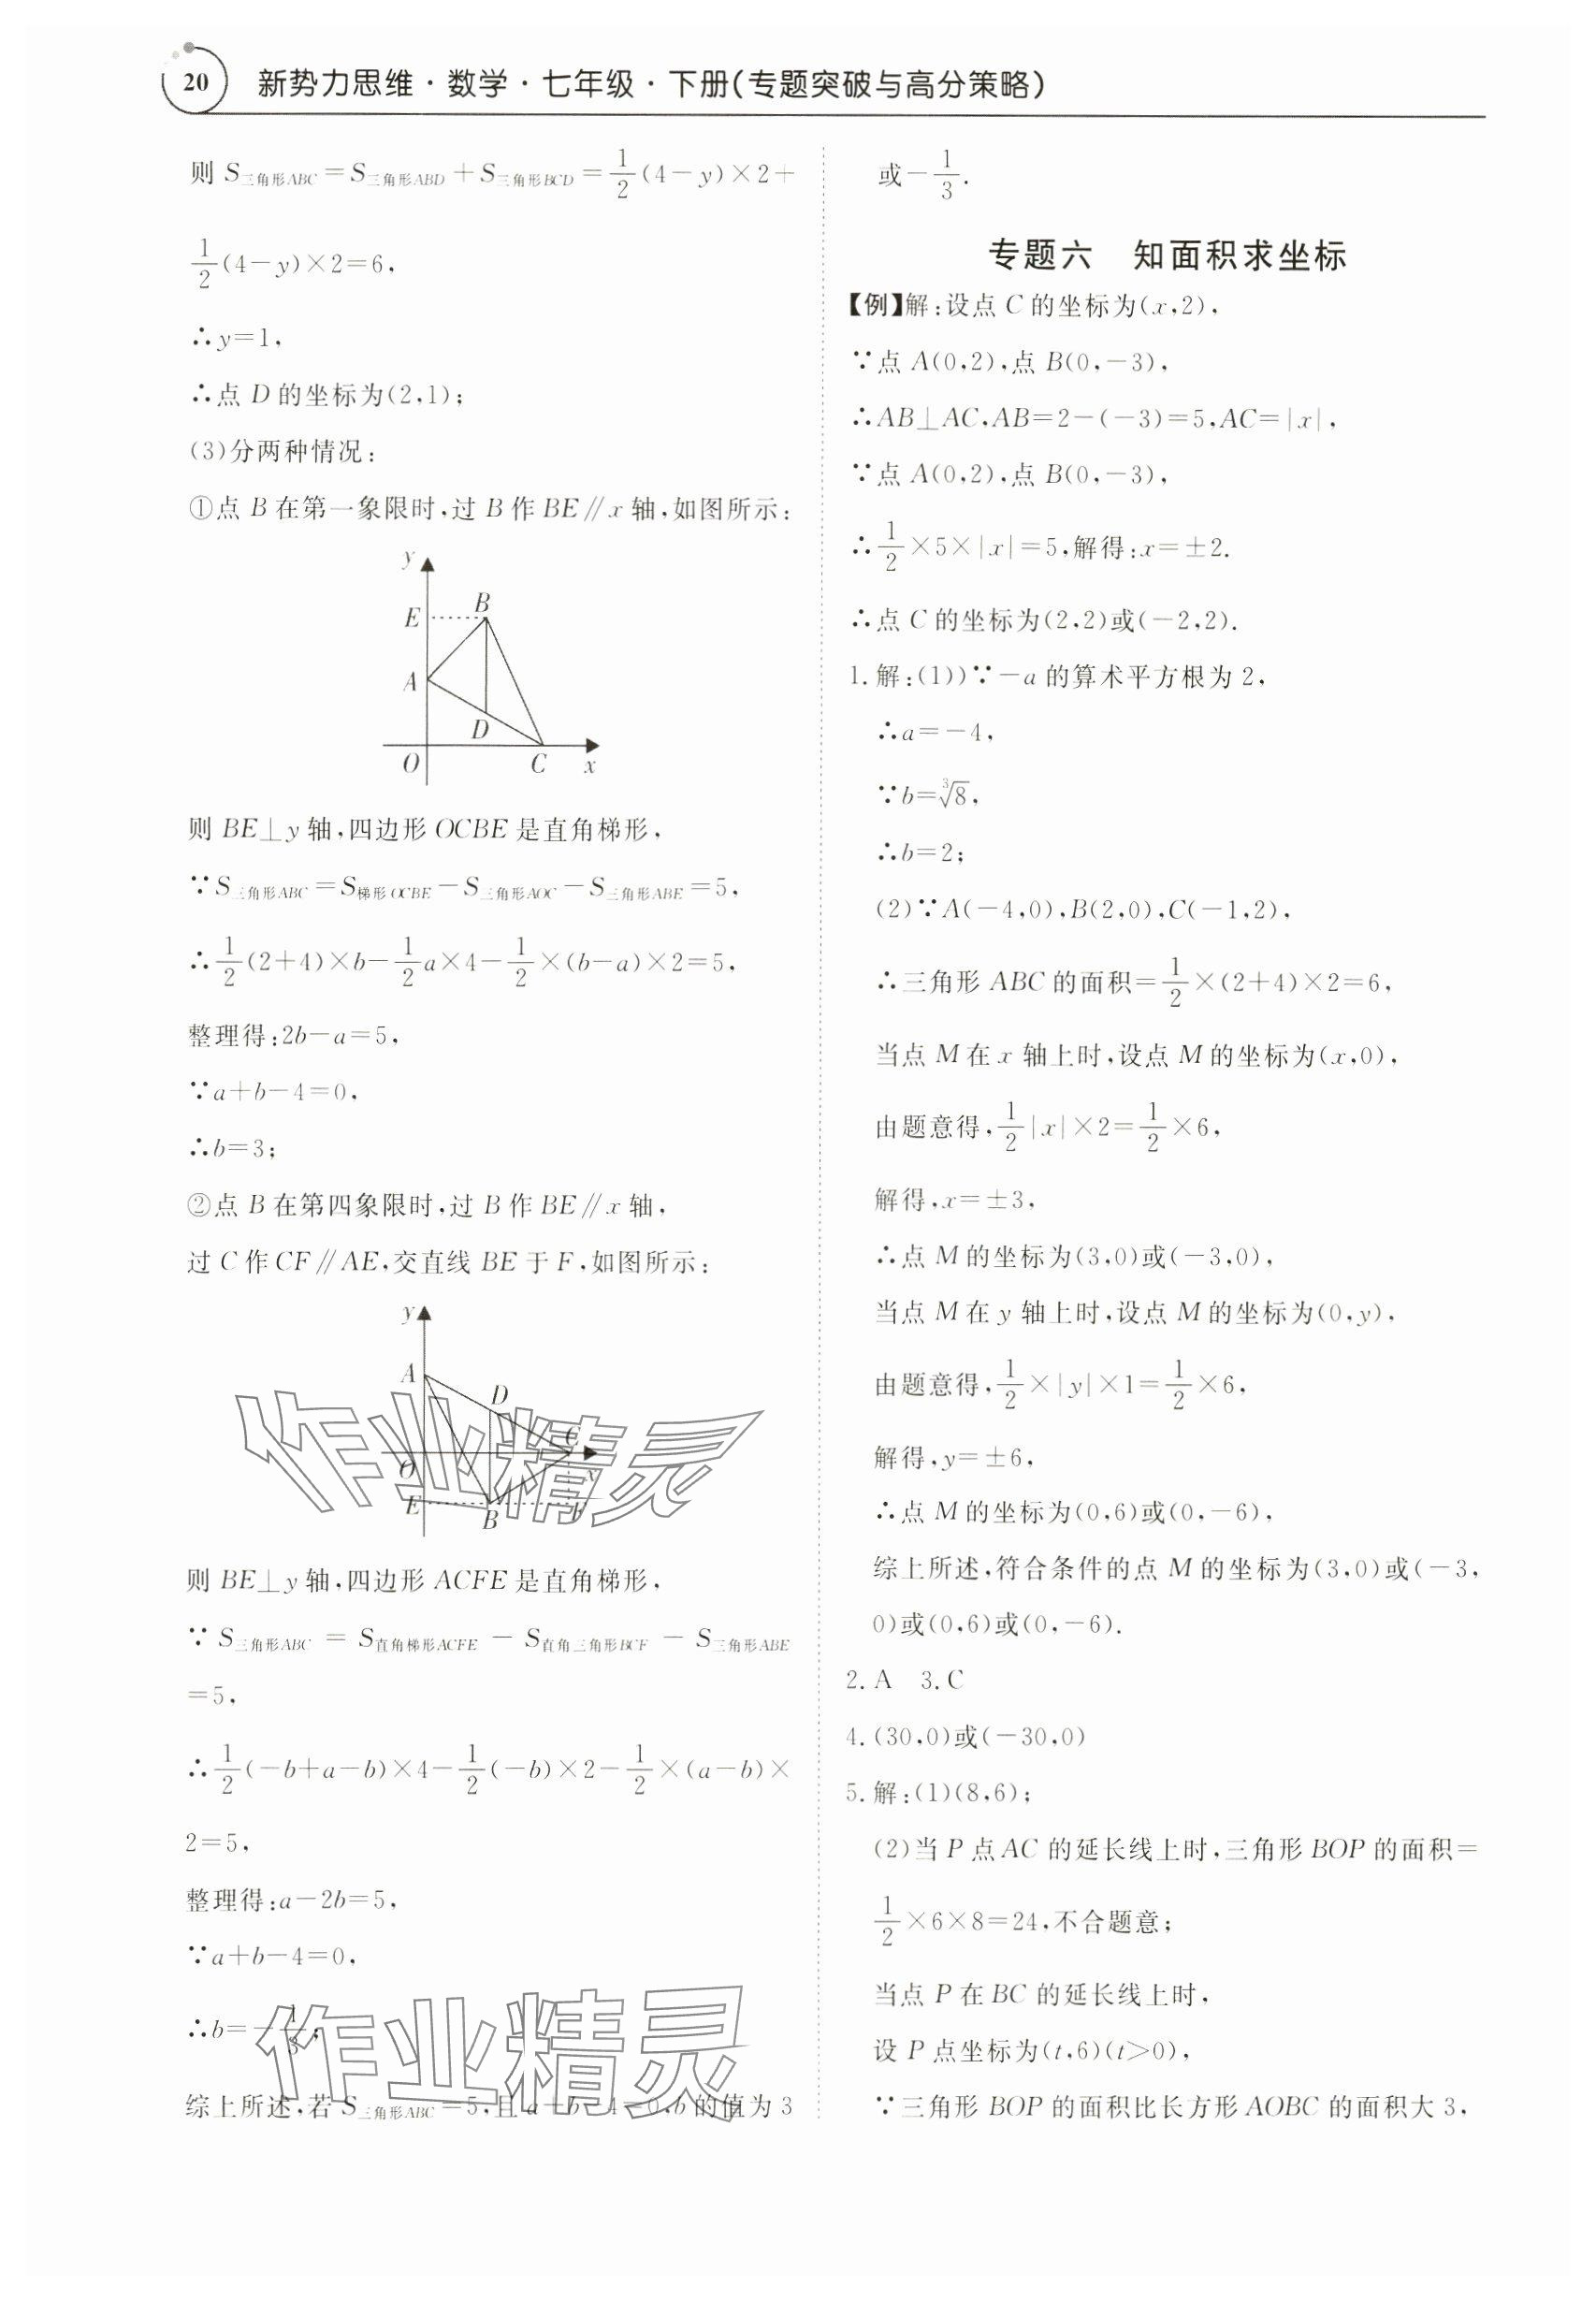 20 新势力思维·数学·七年级·下册(专题突破与高分策略)
则 S三角形ABC=S三角形ABD+S三角形BCD=1/2(4-y)×2+
1/2(4-y)×2=6,
∴y=1,
∴点 D 的坐标为(2,1);
(3)分两种情况:
①点 B 在第一象限时,过 B 作 BE∥x 轴,如图所示:
y
E B
A
D
O C x
则 BE⊥y 轴,四边形 OCBE 是直角梯形,
∵S三角形ABC=S梯形OCBE-S三角形AOC-S三角形ABE=5,
∴1/2(2+4)×b-1/2a×4-1/2×(b-a)×2=5,
整理得:2b-a=5,
∵a+b-4=0,
∴b=3;
②点 B 在第四象限时,过 B 作 BE∥x 轴,
过 C 作 CF∥AE,交直线 BE 于 F,如图所示:
y
A
D
C
O x
E B F
则 BE⊥y 轴,四边形 ACFE 是直角梯形,
∵ S三角形ABC = S直角梯形ACFE - S直角三角形BCF - S三角形ABE
=5,
∴1/2(-b+a-b)×4-1/2(-b)×2-1/2×(a-b)×
2=5,
整理得:a-2b=5,
∵a+b-4=0,
∴b=-1/3;
综上所述,若 S三角形ABC=5,且 a+b-4=0,b 的值为 3
或-1/3.
专题六 知面积求坐标
【例】解:设点 C 的坐标为(x,2),
∵点 A(0,2),点 B(0,-3),
∴AB⊥AC,AB=2-(-3)=5,AC=|x|,
∵点 A(0,2),点 B(0,-3),
∴1/2×5×|x|=5,解得:x=±2.
∴点 C 的坐标为(2,2)或(-2,2).
1.解:(1))∵-a 的算术平方根为 2,
∴a=-4,
∵b=∛8,
∴b=2;
(2)∵A(-4,0),B(2,0),C(-1,2),
∴三角形 ABC 的面积=1/2×(2+4)×2=6,
当点 M 在 x 轴上时,设点 M 的坐标为(x,0),
由题意得,1/2|x|×2=1/2×6,
解得,x=±3,
∴点 M 的坐标为(3,0)或(-3,0),
当点 M 在 y 轴上时,设点 M 的坐标为(0,y),
由题意得,1/2×|y|×1=1/2×6,
解得,y=±6,
∴点 M 的坐标为(0,6)或(0,-6),
综上所述,符合条件的点 M 的坐标为(3,0)或(-3,
0)或(0,6)或(0,-6).
2.A 3.C
4.(30,0)或(-30,0)
5.解:(1)(8,6);
(2)当 P 点 AC 的延长线上时,三角形 BOP 的面积=
1/2×6×8=24,不合题意;
当点 P 在 BC 的延长线上时,
设 P 点坐标为(t,6)(t>0),
∵三角形 BOP 的面积比长方形 AOBC 的面积大 3,
作业精灵
作业精灵